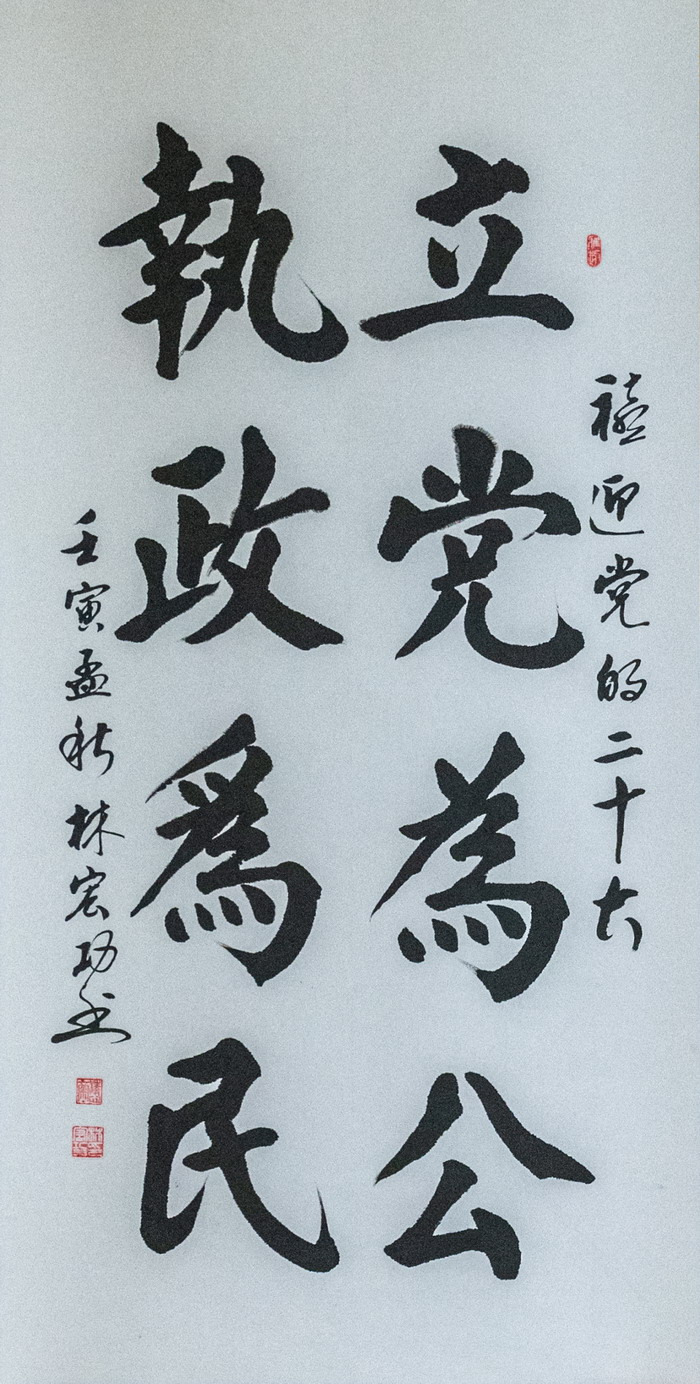 禧迎党的二十大
立党為公
執政爲民
壬寅孟秋林宏功书